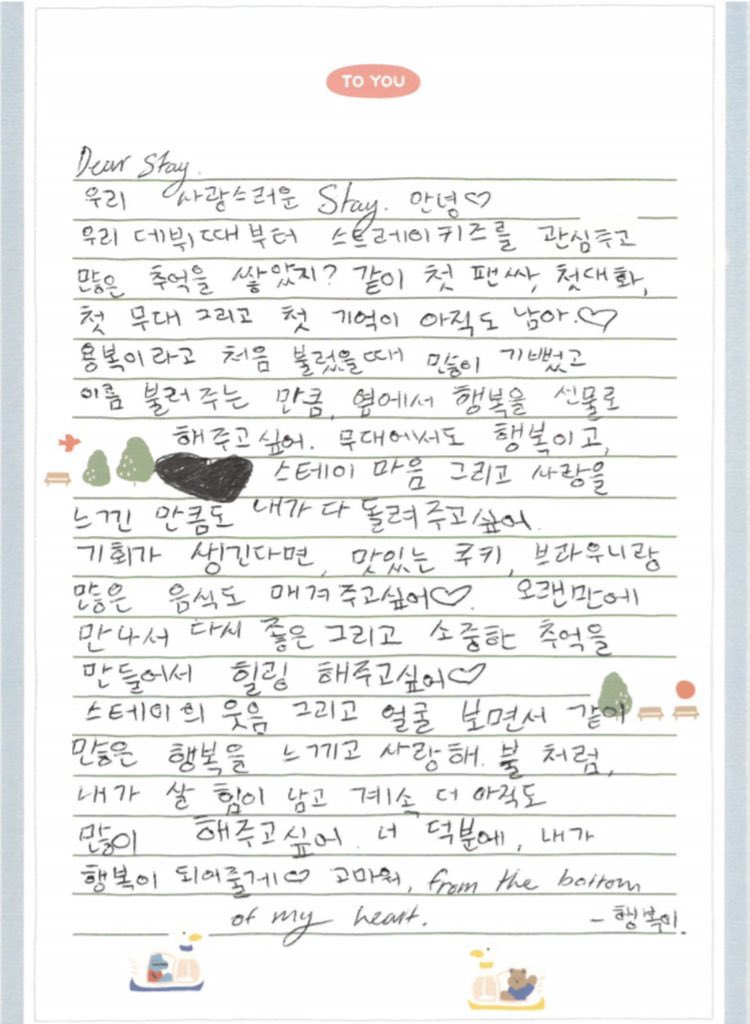 TO YOU
Dear Stay.
우리 사랑스러운 Stay. 안녕♡
우리 데뷔때부터 스트레이키즈를 관심주고
많은 추억을 쌓았지? 같이 첫 팬싸, 첫대화,
첫 무대 그리고 첫 기억이 아직도 남아.♡
용복이라고 처음 불렀을때 많이 기뻤고
이름 불러 주는 만큼, 옆에서 행복을 선물로
해주고싶어. 무대에서도 행복이고,
스테이 마음 그리고 사랑을
느낀 만큼도 내가 다 돌려주고싶어.
기회가 생긴다면, 맛있는 쿠키, 브라우니랑
많은 음식도 매겨주고싶어♡. 오랜만에
만나서 다시 좋은 그리고 소중한 추억을
만들어서 힐링 해주고싶어♡
스테이의 웃음 그리고 얼굴 보면서 같이
많은 행복을 느끼고 사랑해. 불 처럼,
내가 살 힘이 남고 계속 더 아직도
많이 해주고싶어. 너 덕분에, 내가
행복이 되어줄게♡ 고마워, from the bottom
of my heart. - 행복이.